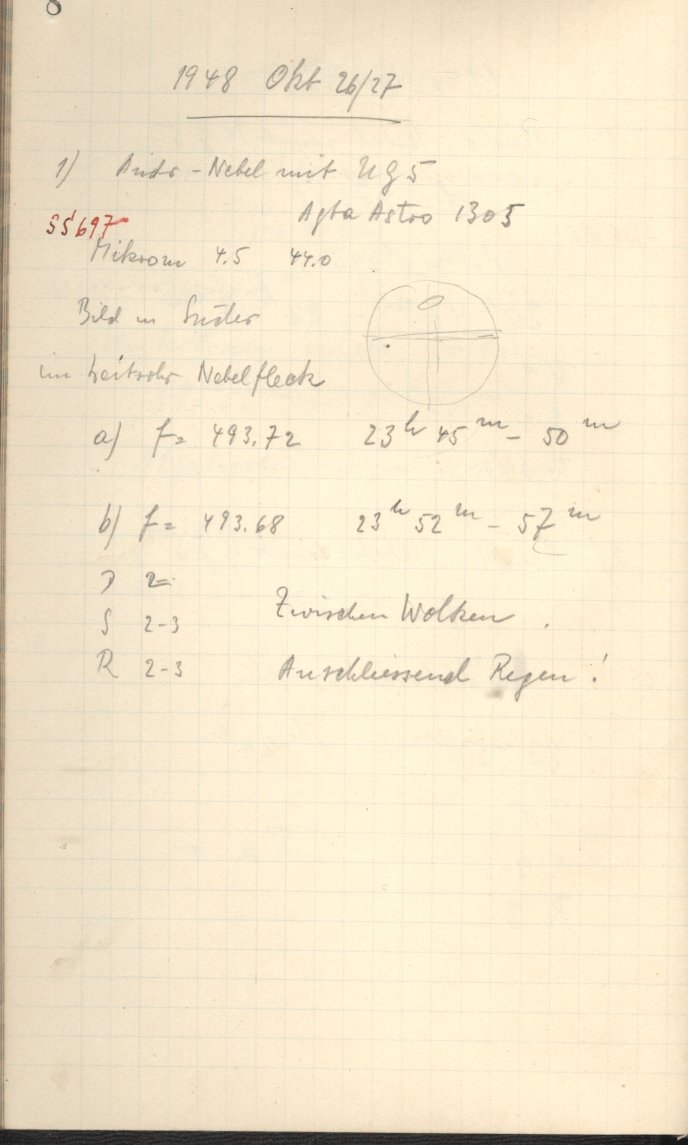 8
1948 Okt 26/27
1) Andr-Nebel mit UG5
Agfa Astro 1305
SS697
Mikrom 4.5 44.0
Bild im Sucher
im Leitrohr Nebelfleck
a) f= 493.72 23h 45m - 50m
b) f= 493.68 23h 52m - 57m
D 2
S 2-3 Zwischen Wolken.
R 2-3 Anschliessend Regen!